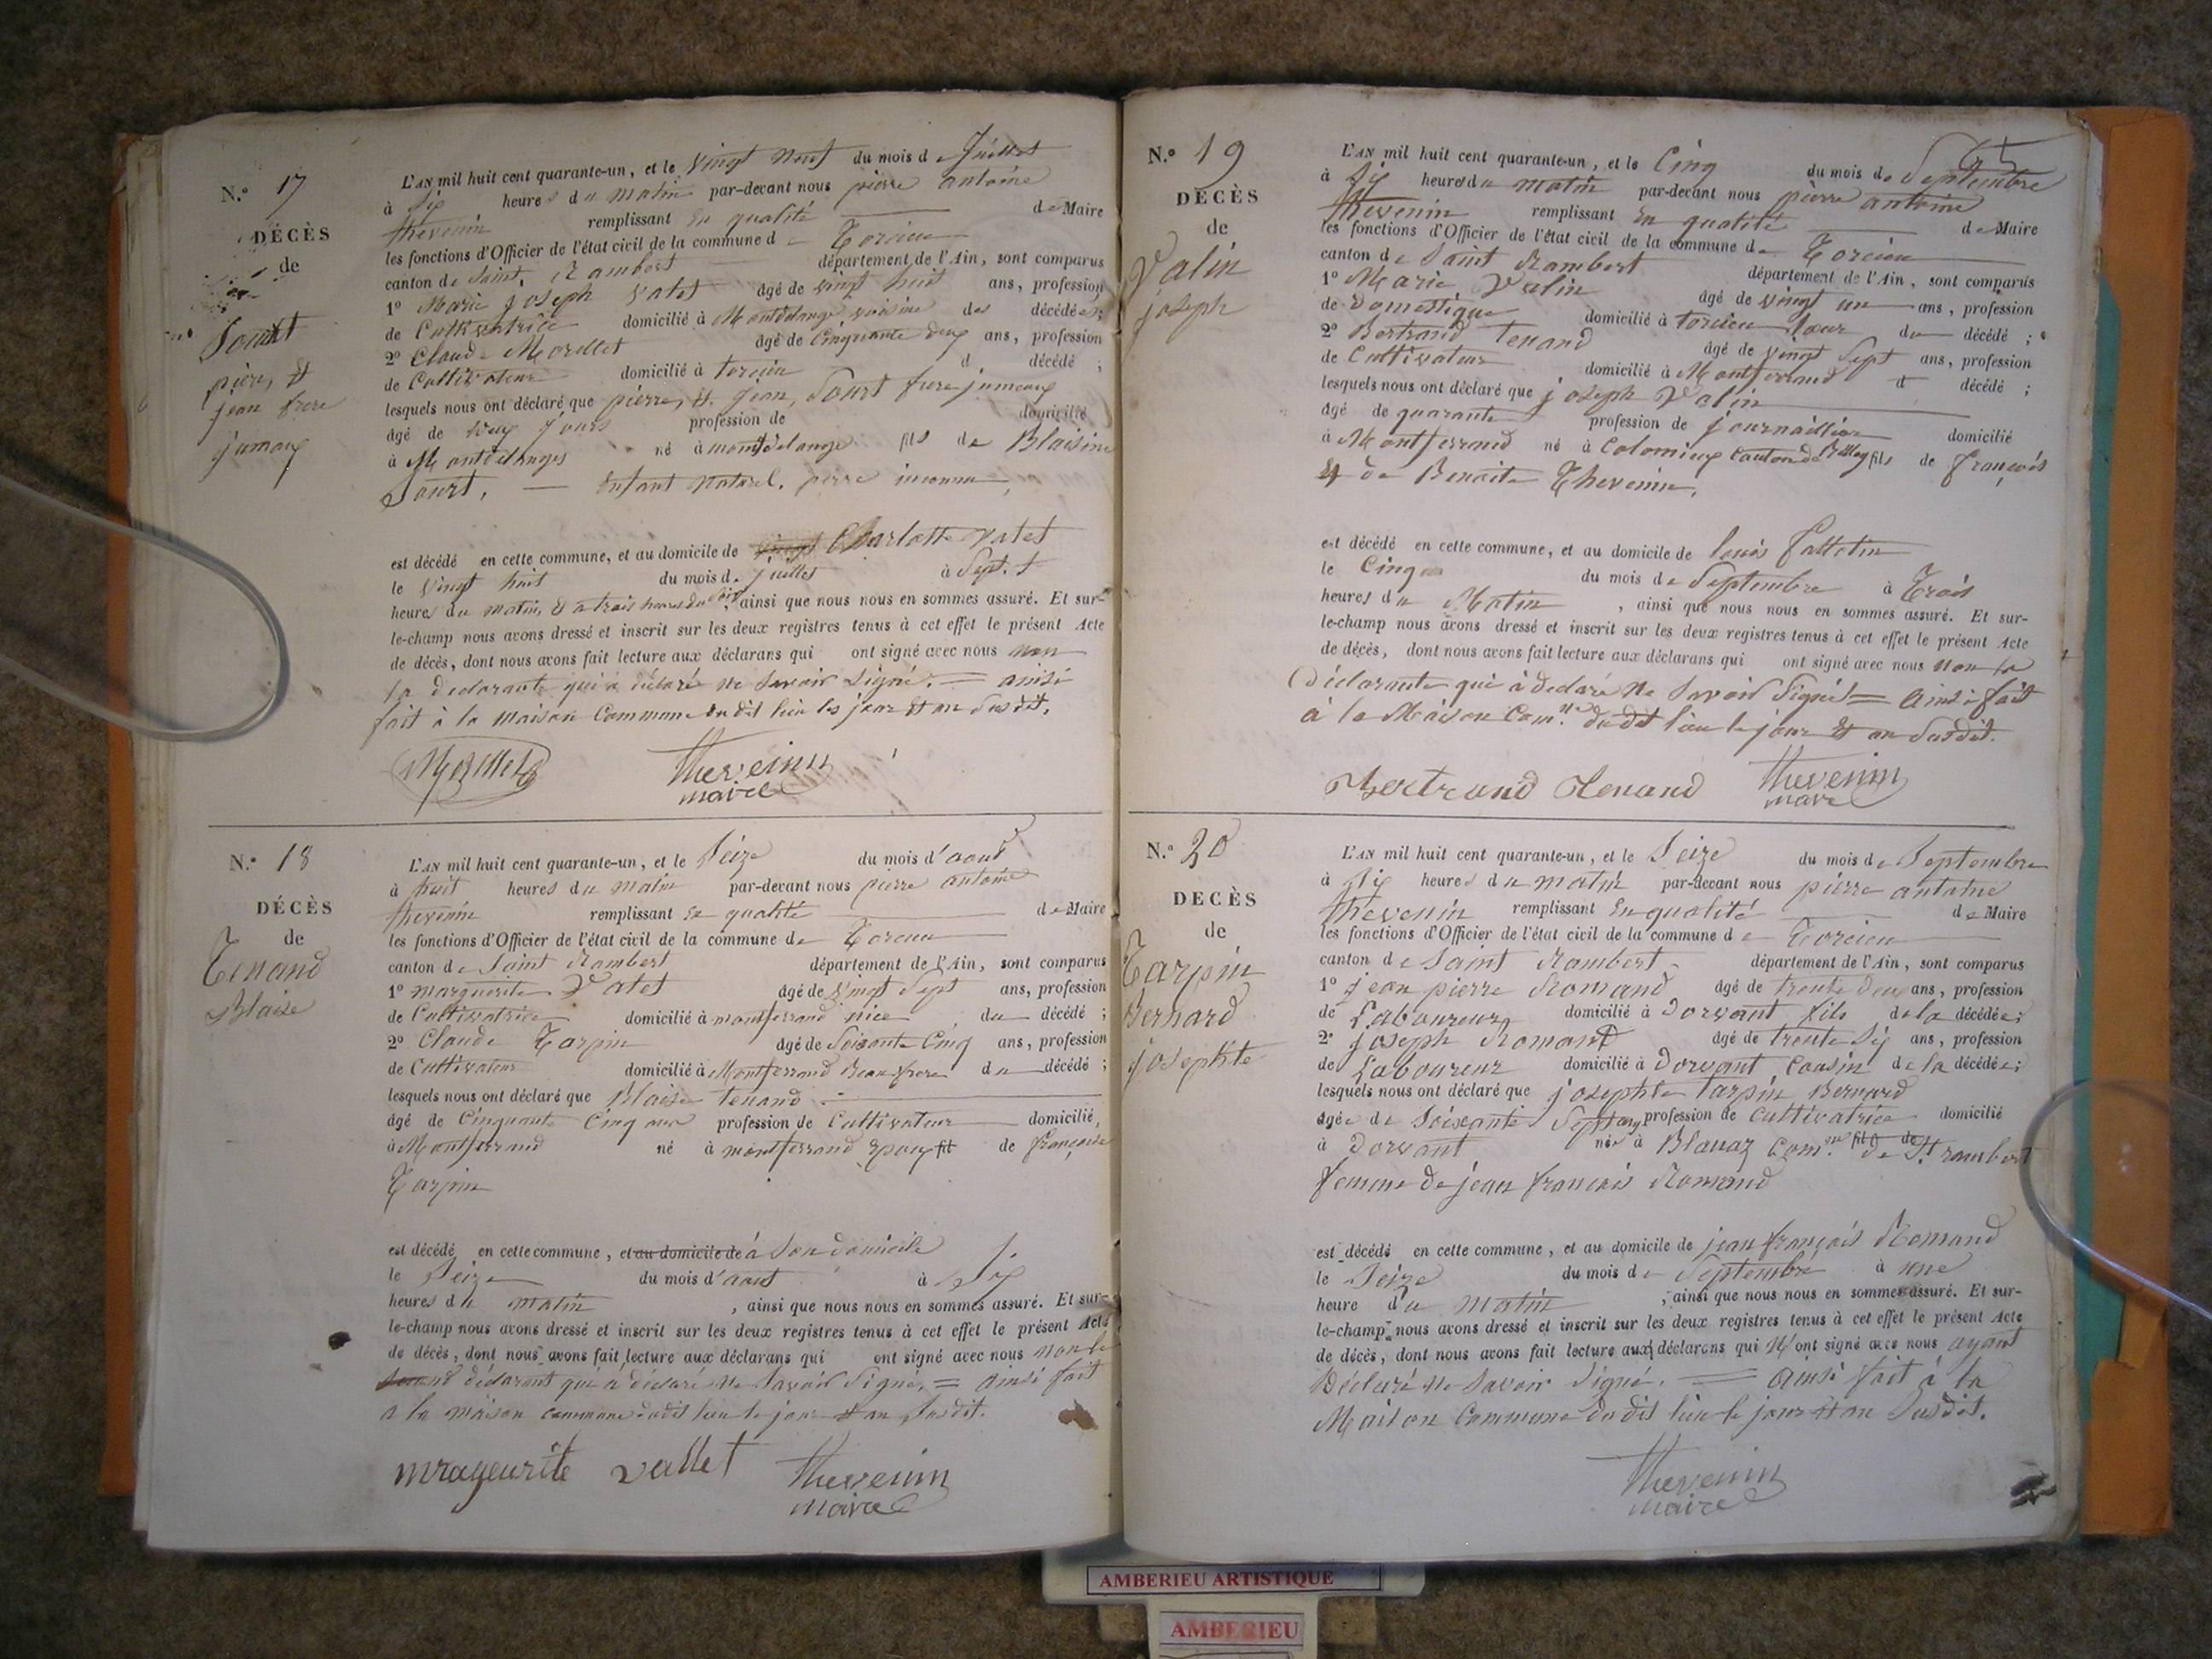 N.° 17
DÉCÈS
de
pierre, et
jean frere
jumeaux
L'AN mil huit cent quarante-un, et le vingt neuf du mois de Juillet
à six heures du matin par-devant nous pierre antoine
thevenin remplissant en qualité de Maire
les fonctions d'Officier de l'état civil de la commune de Torcieu
canton de Saint Rambert département de l'Ain, sont comparus
1° Marie joseph Vatet âgé de vingt huit ans, profession
de Cultivatrice domicilié à Montdelange voisine des décédés;
2° Claude Morellet âgé de Cinquante deux ans, profession
de Cultivateur domicilié à torcieu d décédé ;
lesquels nous ont déclaré que pierre, et Jean, Sourt frere jumeaux
âgé de deux jours profession de domicilié
à Montdelanges né à montdelange fils de Blaisine
Sourt, enfant naturel, perre inconnu,
est décédé en cette commune, et au domicile de Charlotte Vatet
le vingt huit du mois de juillet à Sept
heures du matin, et à trois heures du soir, ainsi que nous nous en sommes assuré. Et sur-
le-champ nous avons dressé et inscrit sur les deux registres tenus à cet effet le présent Acte
de décès, dont nous avons fait lecture aux déclarans qui ont signé avec nous non
la declarante qui a déclaré ne savoir signé. = ainsi
fait à la maison Commune du dit lieu les jour et an susdit.
Morellet thevenin
maire
N.° 18
DÉCÈS
de
Tenand
Blaise
L'AN mil huit cent quarante-un, et le Seize du mois d'aout
à huit heures du matin par-devant nous pierre antoine
thevenin remplissant en qualité de Maire
les fonctions d'Officier de l'état civil de la commune de Torcieu
canton de Saint Rambert département de l'Ain, sont comparus
1° marguerite Vatet âgé de vingt sept ans, profession
de Cultivatrice domicilié à montferrand niece du décédé ;
2° Claude Tarpin âgé de Soixante Cinq ans, profession
de Cultivateur domicilié à Montferrand Beau frere du décédé ;
lesquels nous ont déclaré que Blaise tenand
âgé de Cinquante Cinq ans profession de Cultivateur domicilié
à Montferrand né à montferrand Epoux fil de françoise
Tarpin
est décédé en cette commune, et au domicile de à Son domicile
le Seize du mois d'aout à Six
heures du matin, ainsi que nous nous en sommes assuré. Et sur-
le-champ nous avons dressé et inscrit sur les deux registres tenus à cet effet le présent Acte
de décès, dont nous avons fait lecture aux déclarans qui ont signé avec nous non le
second déclarant qui a déclaré ne savoir signé. = ainsi fait
a la maison commune dudit lieu le jour et an susdit.
mrageurite vallet thevenin
maire
65
N.° 19
DÉCÈS
de
Valin
joseph
L'AN mil huit cent quarante-un, et le Cinq du mois de Septembre
à Six heures du matin par-devant nous pierre antoine
thevenin remplissant en qualité de Maire
les fonctions d'Officier de l'état civil de la commune de Torcieu
canton de Saint Rambert département de l'Ain, sont comparus
1° Marie Valin âgé de vingt un ans, profession
de Domestique domicilié à torcieu Sœur du décédé ;
2° Bertrand Tenand âgé de vingt Sept ans, profession
de Cultivateur domicilié à Montferrand d décédé ;
lesquels nous ont déclaré que joseph Valin
âgé de quarante profession de journaillier domicilié
à Montferrand né à Colomieux Canton de Belley fils de françois
et de Benoite Thevenin.
est décédé en cette commune, et au domicile de louis
le Cinq du mois de Septembre à Trois
heures du Matin, ainsi que nous nous en sommes assuré. Et sur-
le-champ nous avons dressé et inscrit sur les deux registres tenus à cet effet le présent Acte
de décès, dont nous avons fait lecture aux déclarans qui ont signé avec nous non la
Déclarante qui à declaré ne savoir signé = ainsi fait
à la Maison Com.ne du dit lieu le jour et an susdit.
Bertrand Tenand thevenin
maire
N.° 20
DÉCÈS
de
Tarpin
Bernard
josephte
L'AN mil huit cent quarante-un, et le Seize du mois de Septembre
à Six heures du matin par-devant nous pierre antoine
thevenin remplissant en qualité de Maire
les fonctions d'Officier de l'état civil de la commune de Torcieu
canton de Saint Rambert département de l'Ain, sont comparus
1° jean pierre Romand âgé de trente deux ans, profession
de Laboureur domicilié à Dorvant fils de la décédée;
2° joseph Romand âgé de trente Six ans, profession
de Laboureur domicilié à Dorvant Cousin de la décédée;
lesquels nous ont déclaré que josephte Tarpin Bernard
âgée de Soixante Sept ans profession de Cultivatrice domicilié
à Dorvant née à Blanaz Com.ne fil de de St rambert
femme de jean françois Romand
est décédé en cette commune, et au domicile de jean françois Romand
le Seize du mois de Septembre à une
heure du matin, ainsi que nous nous en sommes assuré. Et sur-
le-champ nous avons dressé et inscrit sur les deux registres tenus à cet effet le présent Acte
de décès, dont nous avons fait lecture aux déclarans qui n'ont signé avec nous ayant
Déclaré ne savoir signé. = ainsi fait à la
Maison Commune du dit lieu le jour et an susdit.
thevenin
maire
AMBERIEU ARTISTIQUE
AMBERIEU